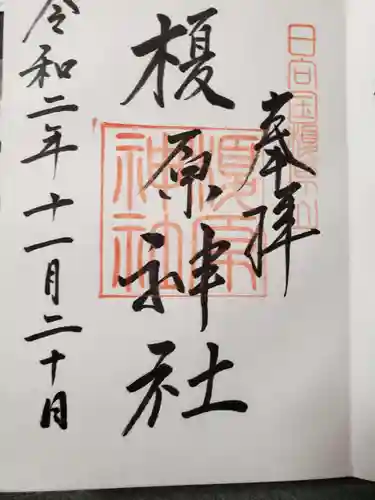 奉拝
榎原神社
令和二年十一月二十日
榎原
神社